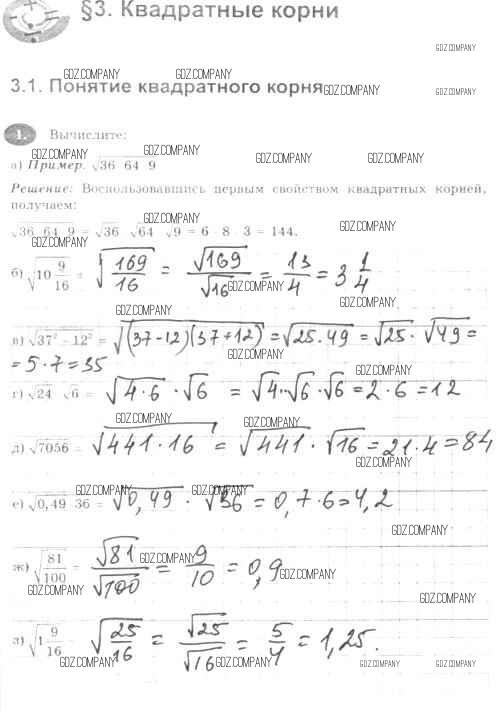 §3. Квадратные корни
GDZ.COMPANY
GDZ.COMPANY GDZ.COMPANY
3.1. Понятие квадратного корня GDZ.COMPANY GDZ.COMPANY
1. Вычислите:
GDZ.COMPANY GDZ.COMPANY GDZ.COMPANY GDZ.COMPANY
а) Пример. √36 · 64 · 9
Решение: Воспользовавшись первым свойством квадратных корней,
получаем:
GDZ.COMPANY GDZ.COMPANY
√36 · 64 · 9 = √36 · √64 · √9 = 6 · 8 · 3 = 144.
GDZ.COMPANY GDZ.COMPANY
б) √10 9/16 = √169/16 = √169/√16 = 13/4 = 3 1/4
GDZ.COMPANY GDZ.COMPANY
GDZ.COMPANY
в) √37² - 12² = √(37-12)(37+12) = √25·49 = √25 · √49 =
GDZ.COMPANY
= 5·7 = 35
GDZ.COMPANY
г) √24 · √6 = √4·6 · √6 = √4·√6·√6 = 2·6 = 12
GDZ.COMPANY GDZ.COMPANY
д) √7056 = √441·16 = √441 · √16 = 21·4 = 84
GDZ.COMPANY
GDZ.COMPANY GDZ.COMPANY
е) √0,49 · 36 = √0,49 · √36 = 0,7·6 = 4,2
GDZ.COMPANY
ж) √81/100 = √81/√100 = 9/10 = 0,9
GDZ.COMPANY GDZ.COMPANY GDZ.COMPANY
GDZ.COMPANY
з) √1 9/16 = √25/16 = √25/√16 = 5/4 = 1,25.
GDZ.COMPANY GDZ.COMPANY GDZ.COMPANY GDZ.COMPANY